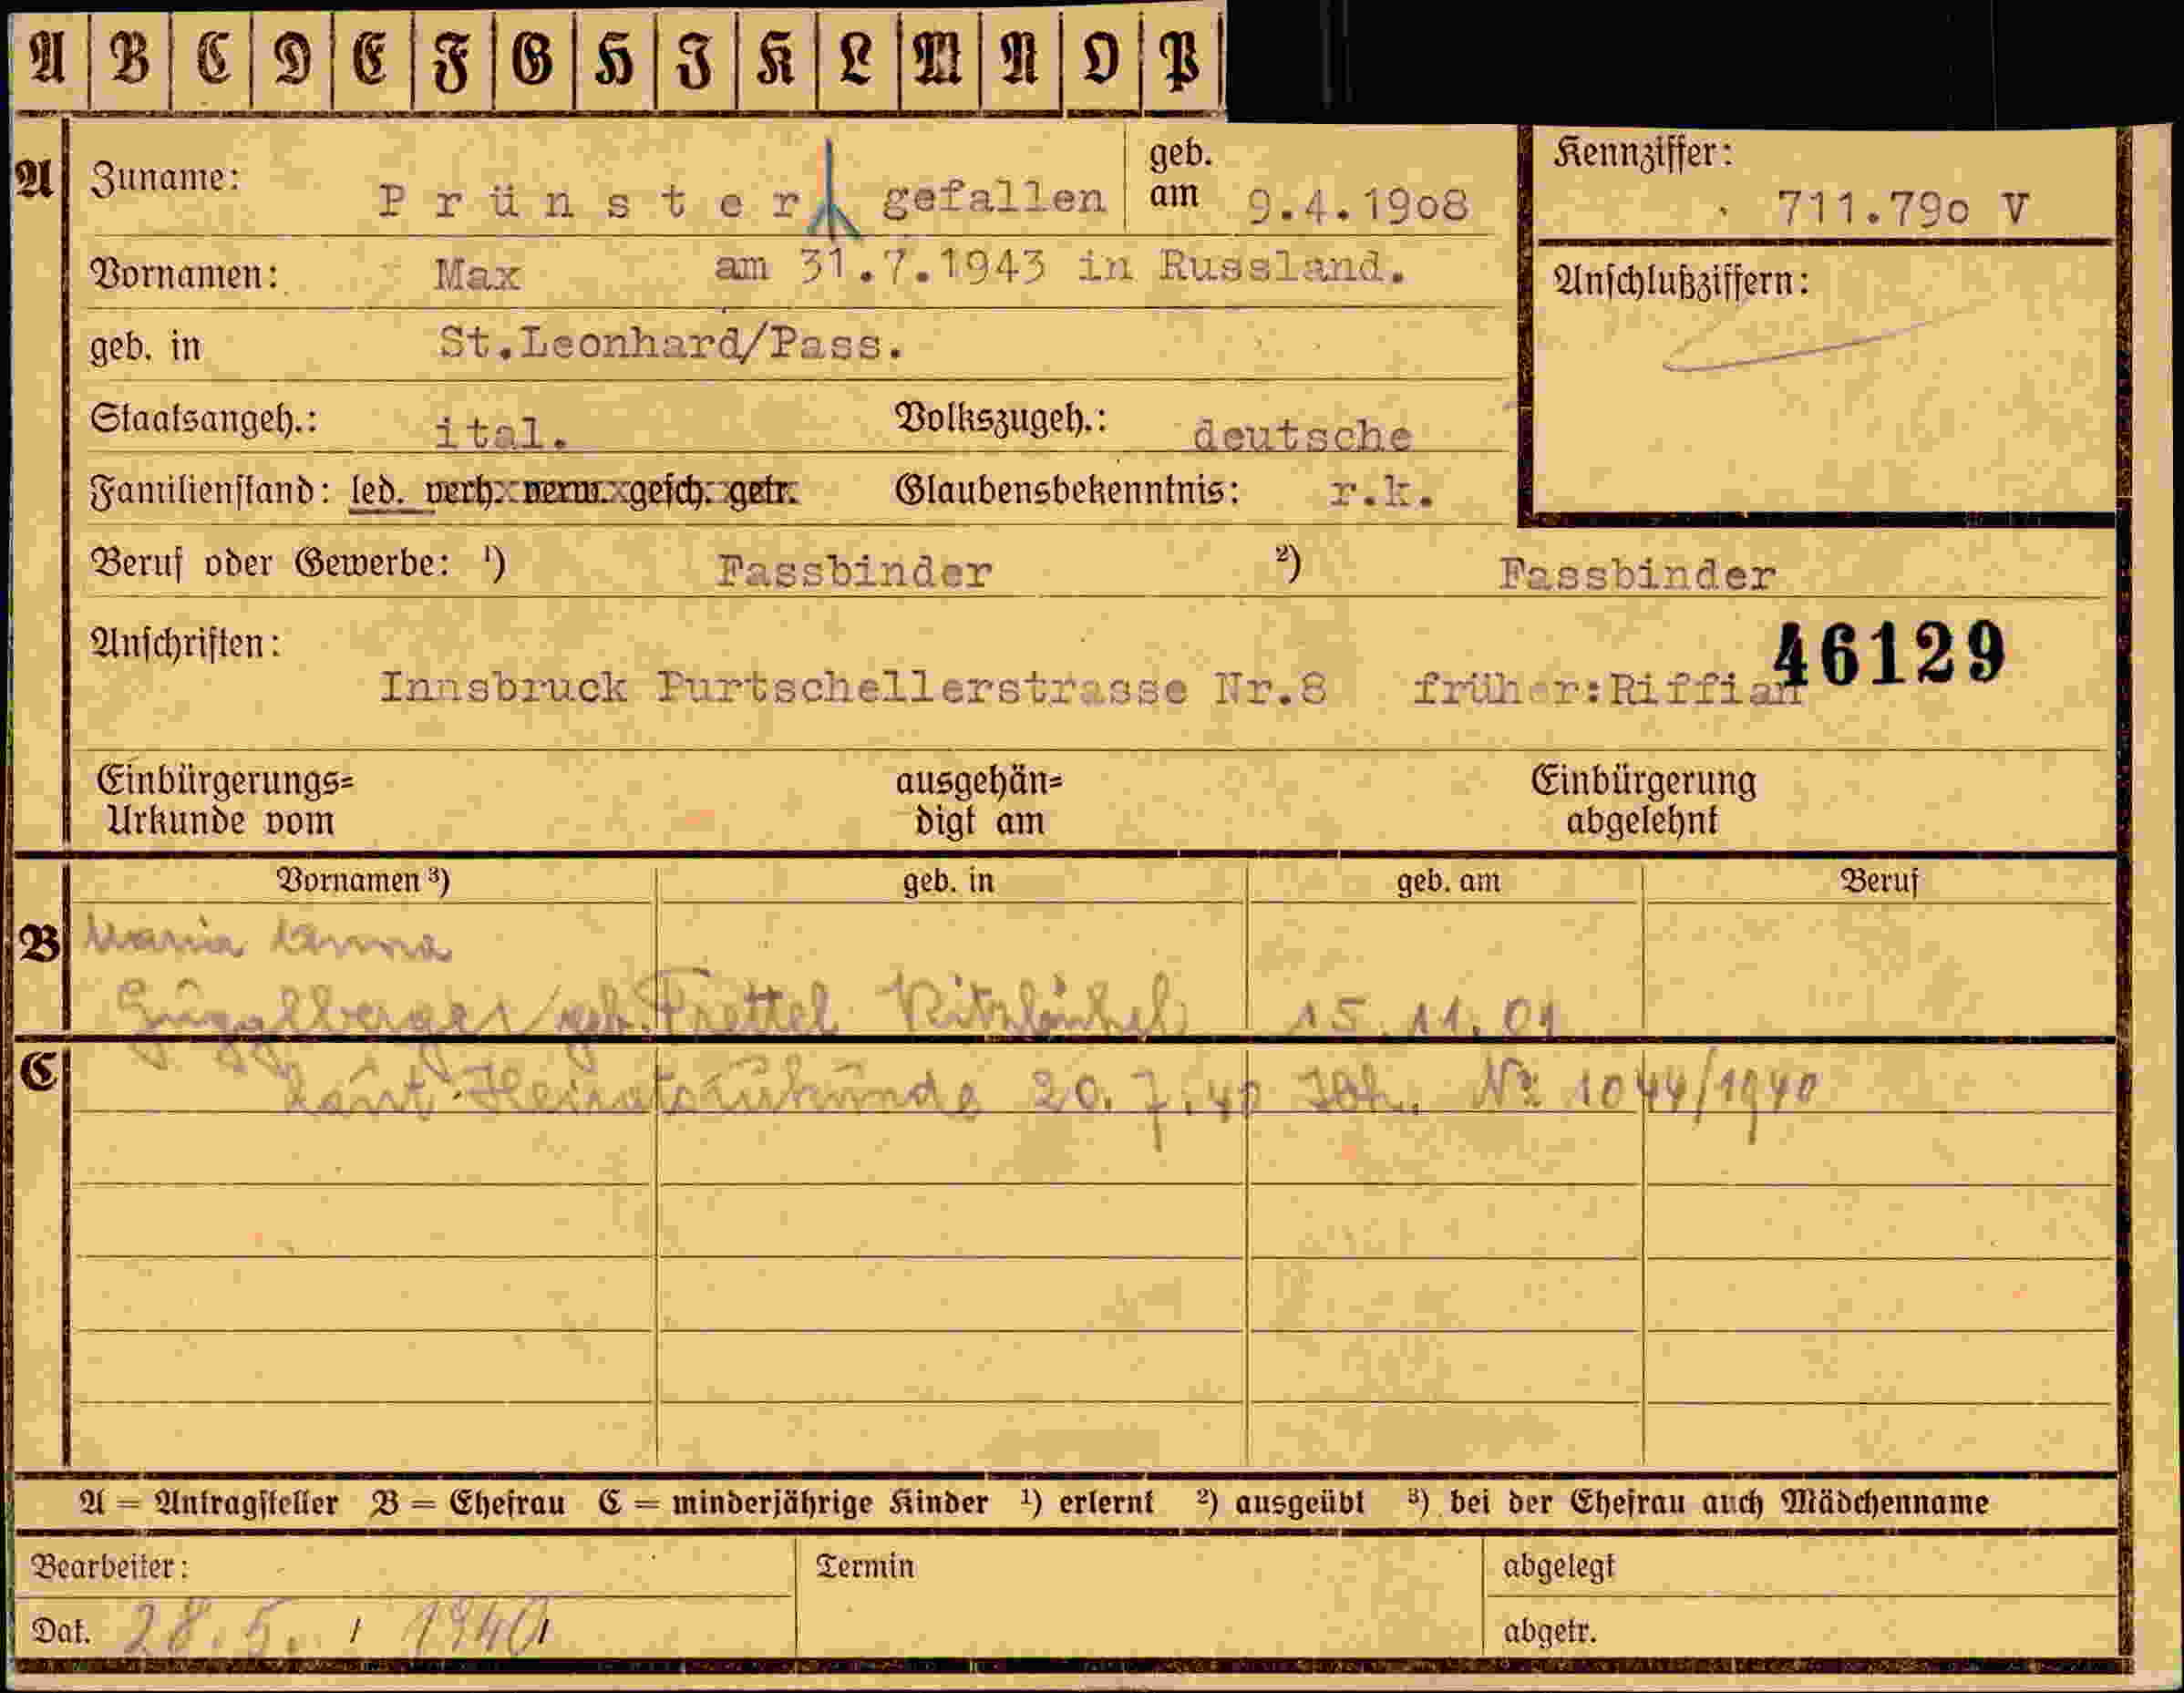 A B C D E F G H I K L M N O P
A Zuname: Prünster gefallen geb. am 9.4.1908 Kennziffer: 711.790 V
Vornamen: Max am 31.7.1943 in Russland. Anschlußziffern:
geb. in St.Leonhard/Pass.
Staatsangeh.: ital. Volkszugeh.: deutsche
Familienstand: led. verh. verw. gesch. getr. Glaubensbekenntnis: r.k.
Beruf oder Gewerbe: ¹) Fassbinder ²) Fassbinder
46129
Anschriften:
Innsbruck Purtschellerstrasse Nr.8 früher:Riffian
Einbürgerungs= ausgehän= Einbürgerung
Urkunde vom digt am abgelehnt
Vornamen ³) geb. in geb. am Beruf
B Maria Anna
Guggelberger/geb. Frettel Kitzbühel 15.11.01
C
laut Heiratsurkunde 20.7.40 Ibk. Nr 1044/1940
A = Antragsteller B = Ehefrau C = minderjährige Kinder ¹) erlernt ²) ausgeübt ³) bei der Ehefrau auch Mädchenname
Bearbeiter: Termin abgelegt
Dat. 28.5. 1940 abgetr.